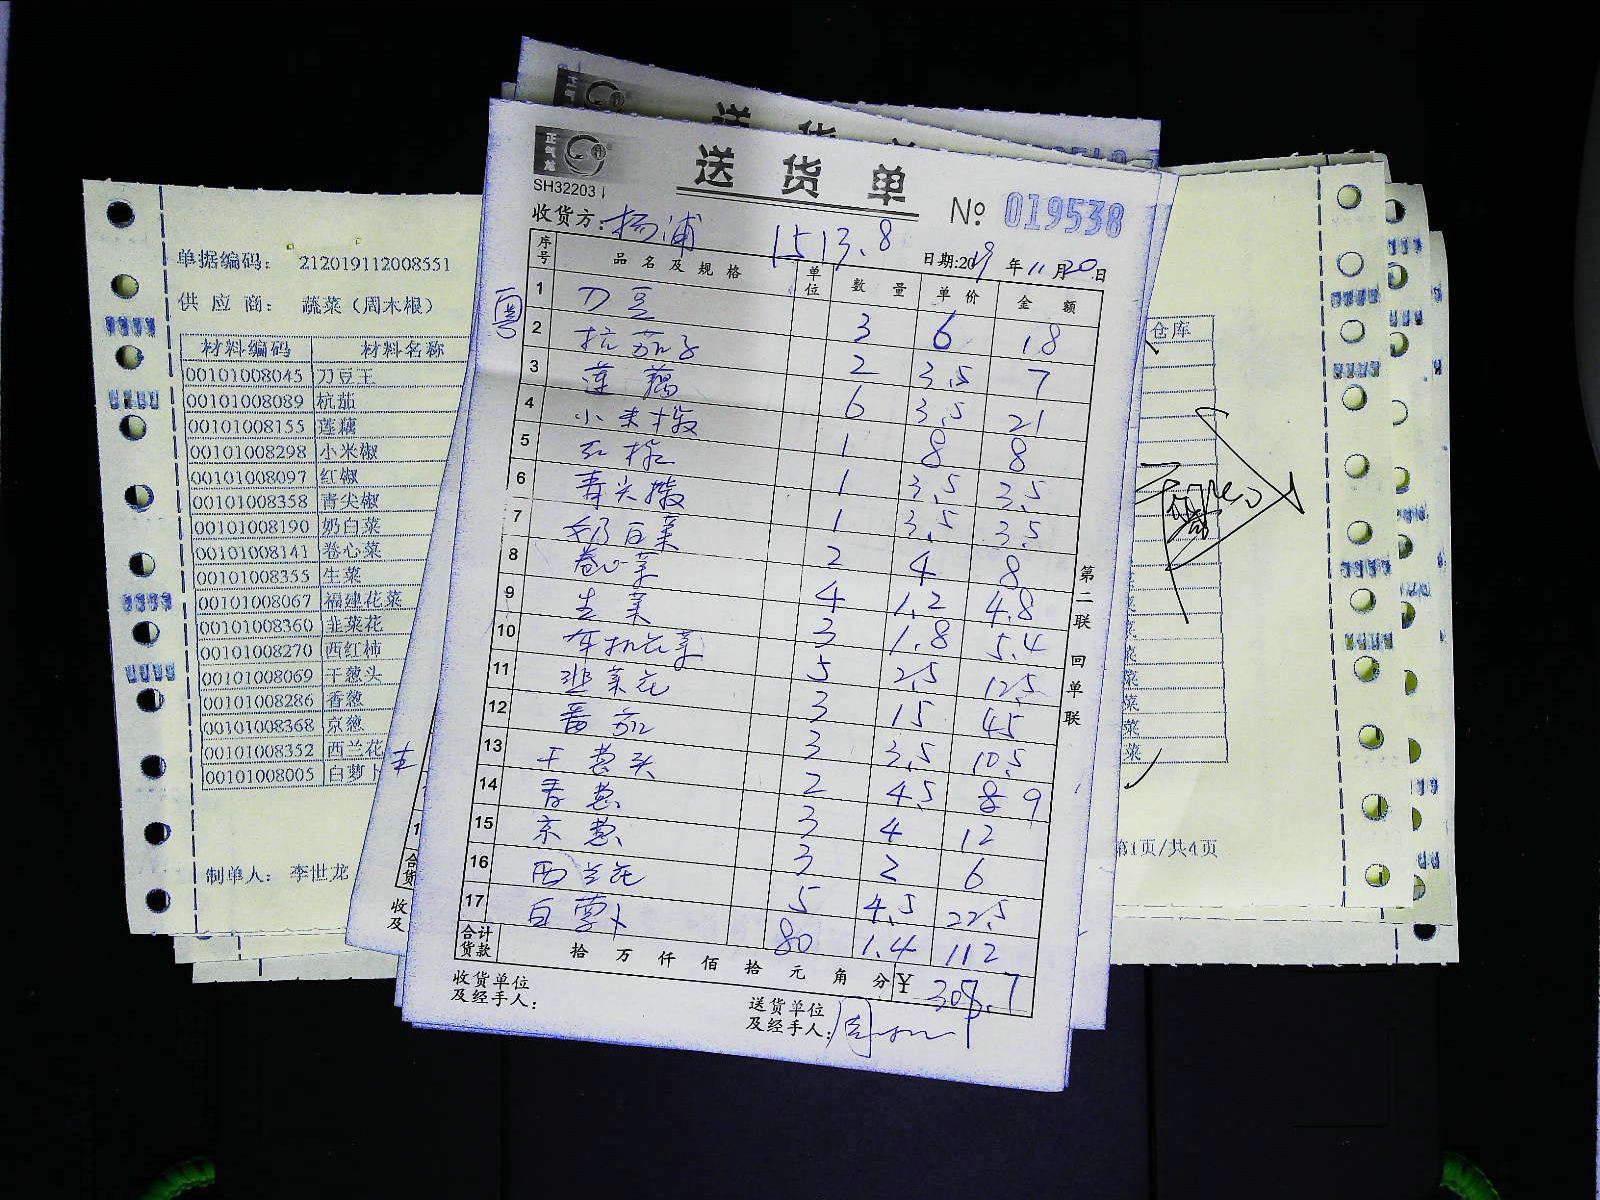 送货单
正气龙
SH32203
№ 019538
收货方: 杨浦 1513.8 日期:2019年11月20日
粤
序号 品名及规格 单位 数量 单价 金额
1 刀豆 3 6 18
2 杭茄子 2 3.5 7
3 莲藕 6 3.5 21
4 小米椒 1 8 8
5 红椒 1 3.5 3.5
6 青尖椒 1 3.5 3.5
7 奶白菜 2 4 8
8 卷心菜 4 1.2 4.8
9 生菜 3 1.8 5.4
10 有机花菜 5 2.5 12.5
11 韭菜花 3 15 45
12 番茄 3 3.5 10.5
13 干葱头 2 4.5 9
14 香葱 3 4 12
15 京葱 3 2 6
16 西兰花 5 4.5 22.5
17 白萝卜 80 1.4 112
合计货款 拾万仟佰拾元角分 ¥ 308.7
收货单位及经手人:
送货单位及经手人:
第二联 回单联
单据编码: 212019112008551
供应商: 蔬菜(周木根)
材料编码 材料名称
00101008045 刀豆王
00101008089 杭茄
00101008155 莲藕
00101008298 小米椒
00101008097 红椒
00101008358 青尖椒
00101008190 奶白菜
00101008141 卷心菜
00101008355 生菜
00101008067 福建花菜
00101008360 韭菜花
00101008270 西红柿
00101008069 干葱头
00101008286 香葱
00101008368 京葱
00101008352 西兰花
00101008005 白萝卜
制单人: 李世龙
仓库
第1页/共4页